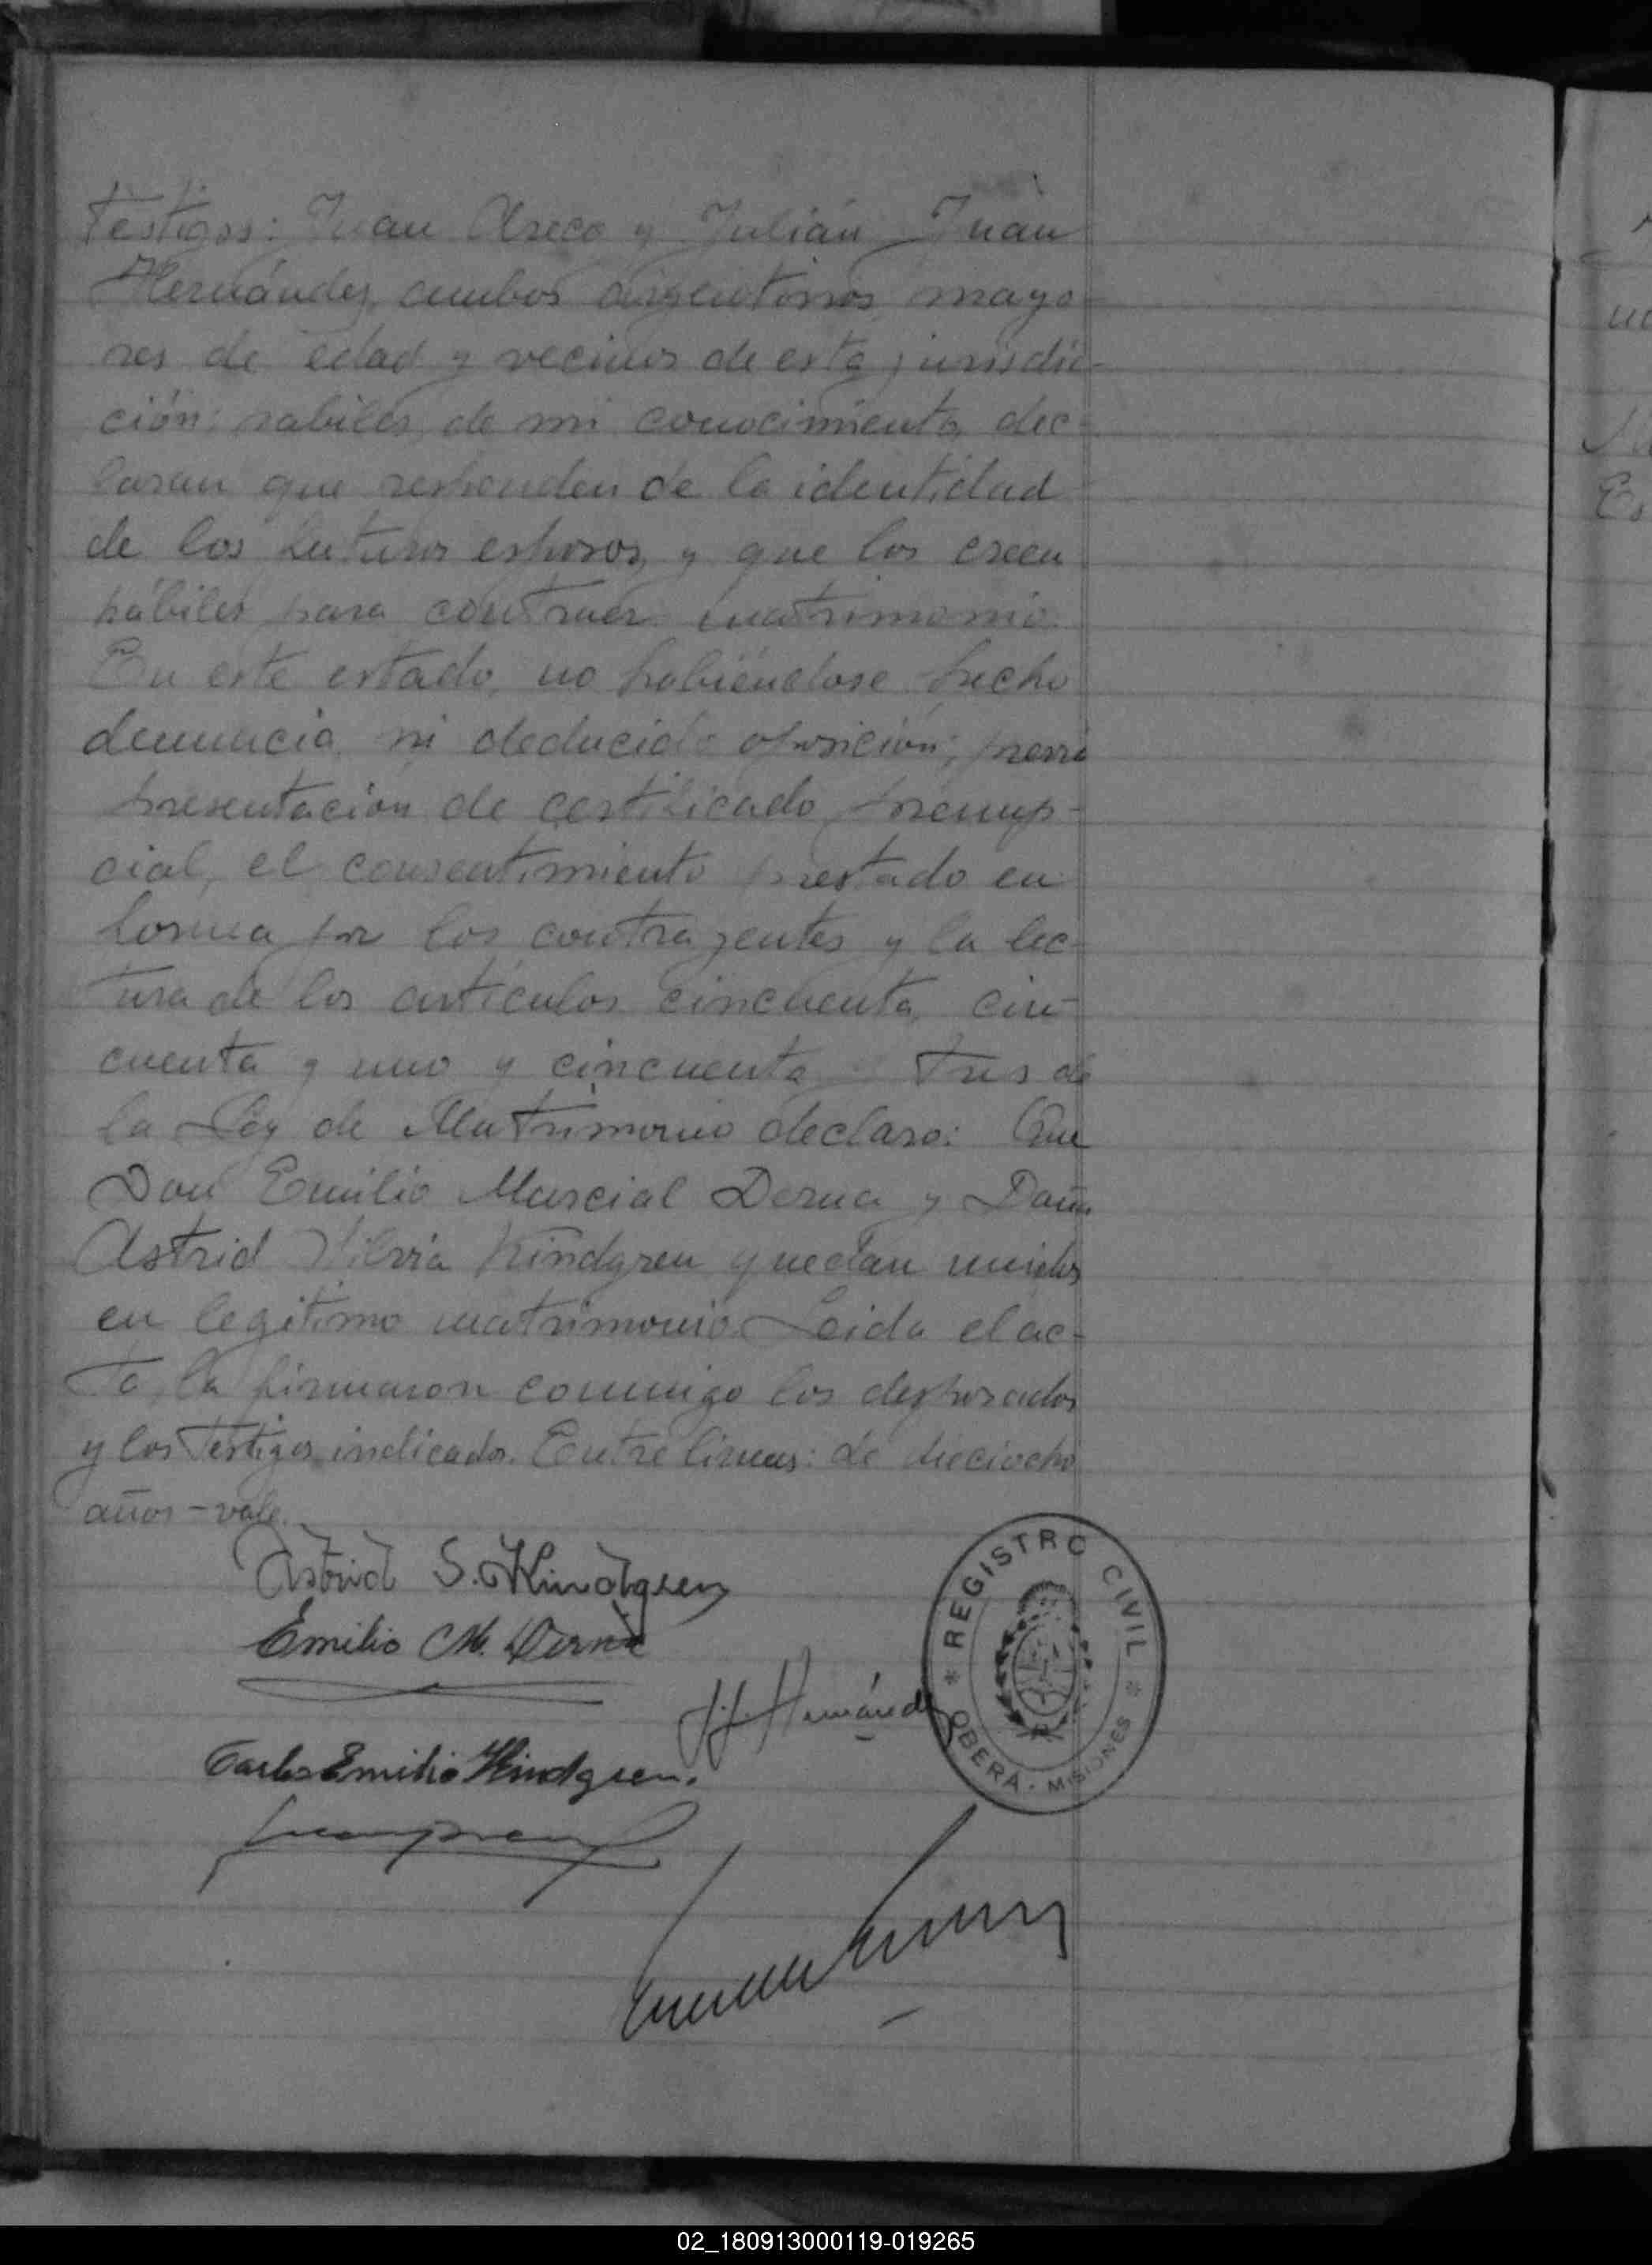 Testigos: Juan Areco y Julián Juan
Hernández, ambos argentinos, mayo-
res de edad y vecinos de esta jurisdic-
ción; habiles, de mi conocimiento, dec-
laran que responden de la identidad
de los futuros esposos, y que los creen
hábiles para contraer matrimonio.
En este estado, no habiéndose hecho
denuncia, ni deducido oposición; previa
presentación de certificado prenup-
cial, el consentimiento prestado en
forma por los contrayentes y la lec-
tura de los artículos cincuenta, cin-
cuenta y uno y cincuenta tres de
la Ley de Matrimonio declaro: Que
Don Emilio Marcial Derna y Doña
Astrid Silvia Kindgren quedan unidos
en legitimo matrimonio. Leida el ac-
ta, la firmaron conmigo los desposados
y los testigos indicados. Entre lineas: de dieciocho
años - vale.
Astrid S. Kindgren
Emilio M. Derna
J. J. Hernández
Carlos Emilio Kindgren.
REGISTRO CIVIL
OBERÁ - MISIONES
02_180913000119-019265